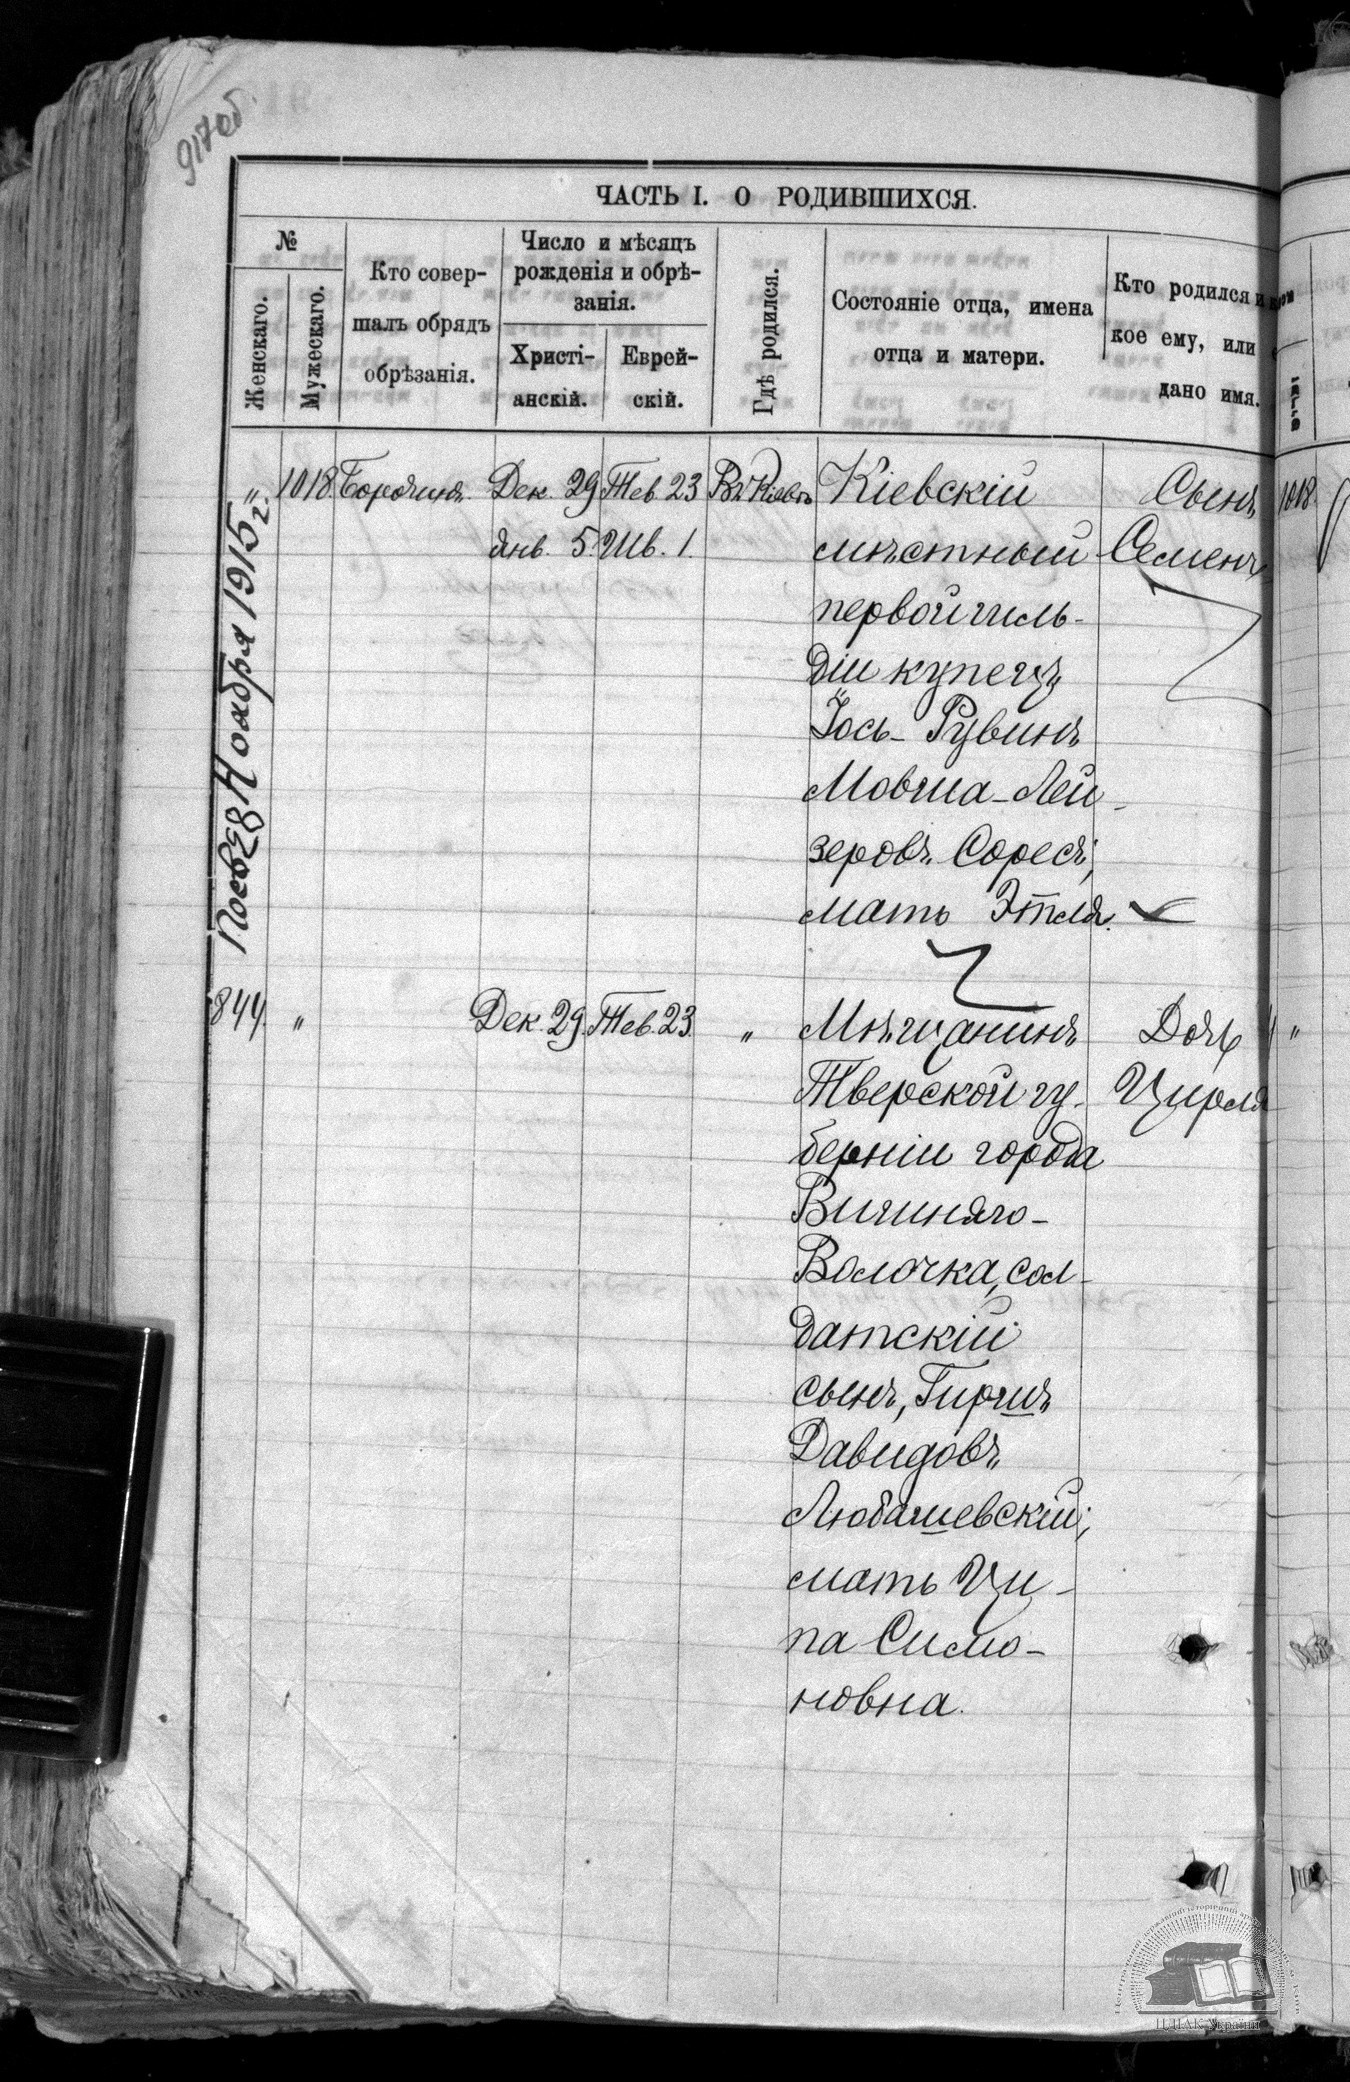 917об.
ЧАСТЬ I. О РОДИВШИХСЯ.
№
Женскаго.
Мужескаго.
Кто совер-
шалъ обрядъ
обрѣзанія.
Число и мѣсяцъ
рожденія и обрѣ-
занія.
Христі-
анскій.
Еврей-
скій.
Гдѣ родился.
Состояніе отца, имена
отца и матери.
Кто родился и
кое ему, или
дано имя.
Ноября 1915 г.
" 1018. Дек. 29 Тев. 23 Въ Кіевѣ
Янв. 5. Шв. 1.
Кіевскій
мѣстный
первой гиль-
діи купецъ
Іось-Рувинъ
Мовша-Лей-
зеровъ Соресъ;
мать Этля.
Сынъ
Семенъ
1018.
844. " Дек. 29. Тев. 23. "
Мѣщанинъ
Тверской гу-
берніи города
Вишняго-
Волочка, сол-
датскій
сынъ, Гиршъ
Давидовъ
Любашевскій;
мать Ци-
па Симо-
новна.
Дочь
Цирля
"
ЦДІАК України